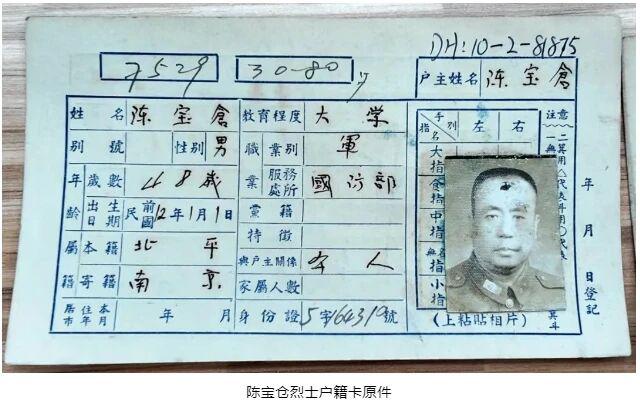 DH:10-2-81875
7529 30-80
户主姓名 陈宝倉
姓名 陈宝倉 教育程度 大学
别號 性别 男 職業别 軍
年龄 歲數 48歲 業 服務處所 國防部
出生日期 民前國12年1月1日 黨籍
特徵
屬籍 本籍 北平 與户主關係 本人
寄籍 南京 家屬人數
居住本市年月 年 月 身份證 5字164319號
手别 左 右
指名
大指
食指
中指
無名指
小指
(上粘貼相片)
注意
年 月 日登記
陈宝仓烈士户籍卡原件